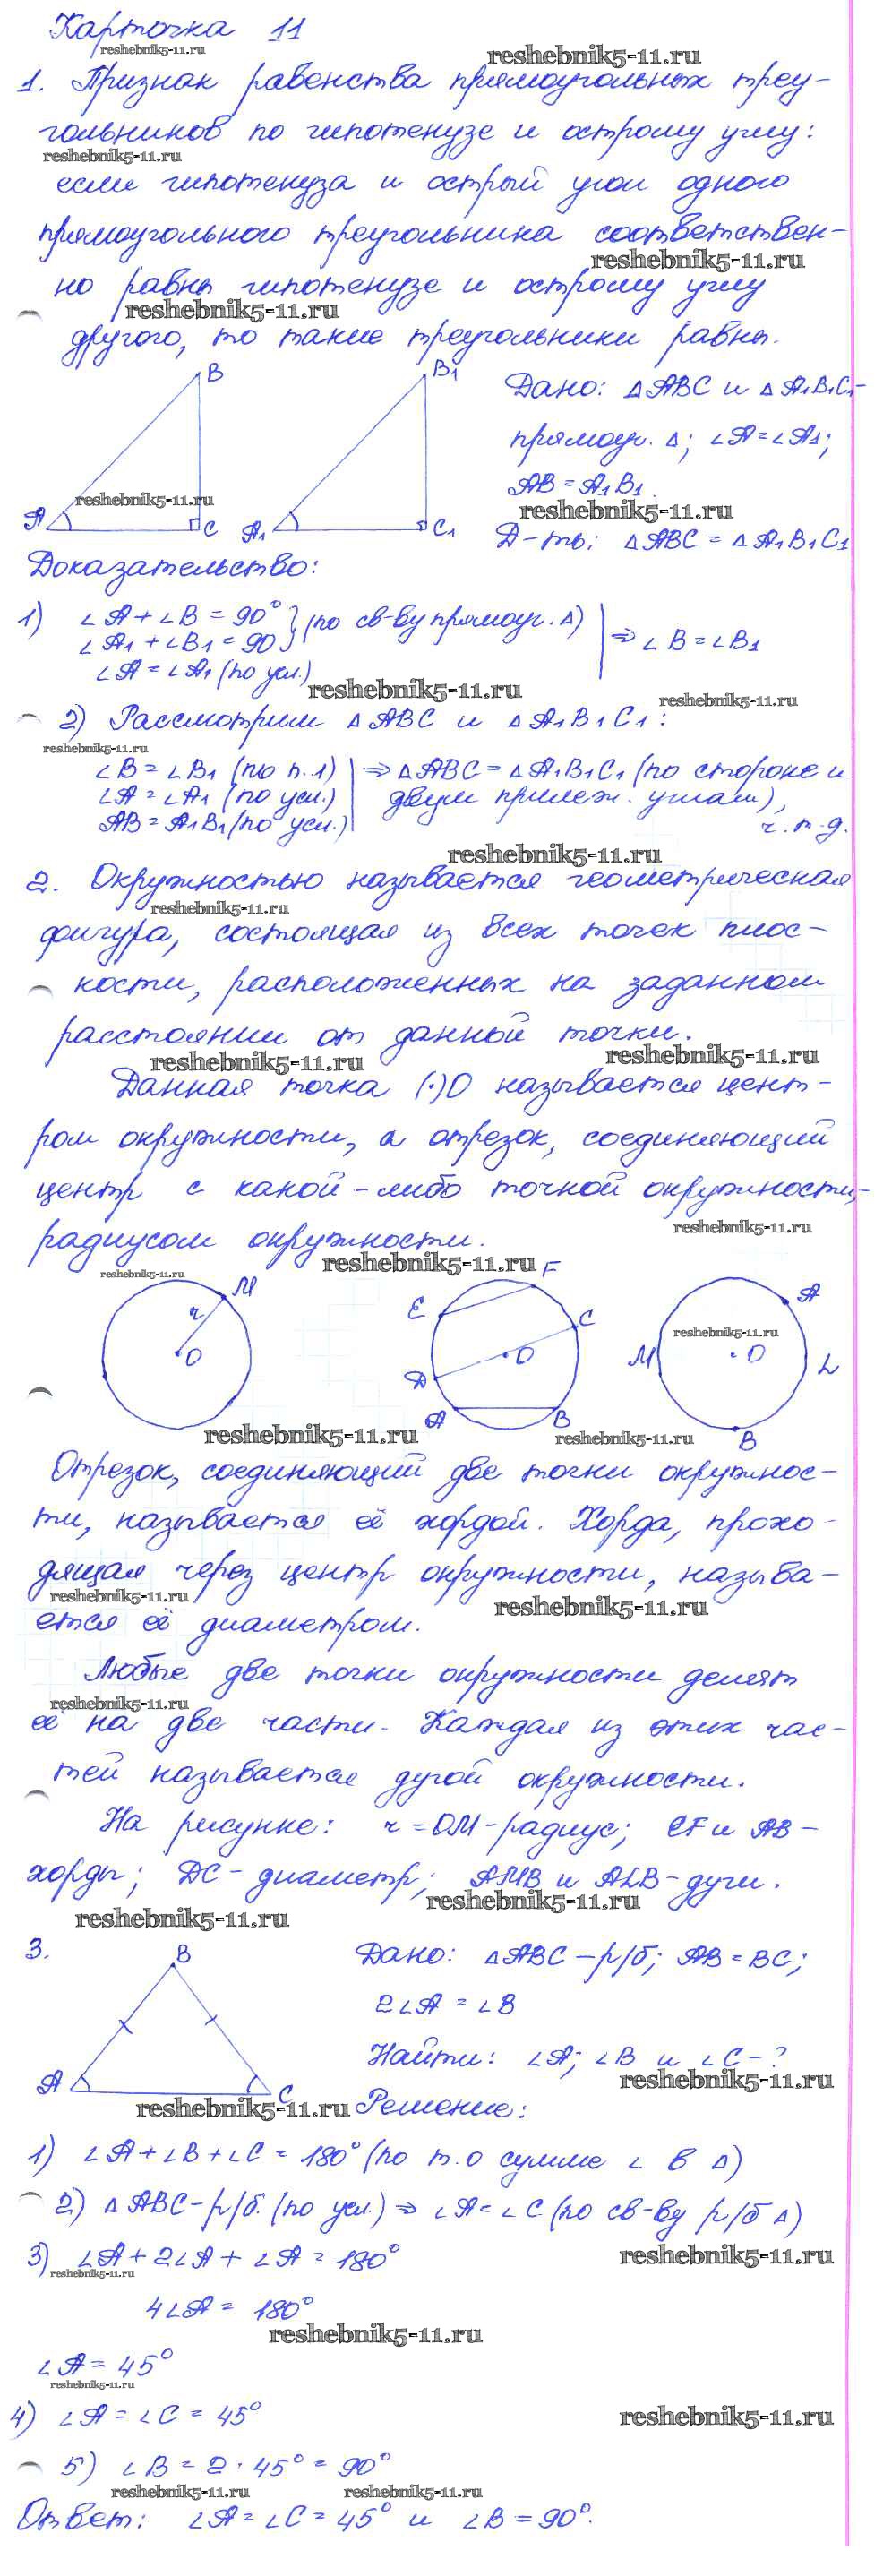 Карточка 11
reshebnik5-11.ru
reshebnik5-11.ru
1. Признак равенства прямоугольных треу-
гольников по гипотенузе и острому углу:
reshebnik5-11.ru
если гипотенуза и острый угол одного
прямоугольного треугольника соответствен-
reshebnik5-11.ru
но равны гипотенузе и острому углу
reshebnik5-11.ru
другого, то такие треугольники равны.
B
B1
Дано: △ABC и △A1B1C1-
прямоуг. △; ∠A=∠A1;
AB=A1B1.
reshebnik5-11.ru
reshebnik5-11.ru
A
C
A1
C1
Д-ть: △ABC = △A1B1C1
Доказательство:
1) ∠A+∠B = 90°} (по св-ву прямоуг. △) | ⇒ ∠B=∠B1
∠A1+∠B1=90
∠A=∠A1 (по усл.)
reshebnik5-11.ru
reshebnik5-11.ru
2) Рассмотрим △ABC и △A1B1C1:
reshebnik5-11.ru
∠B=∠B1 (по п.1) | ⇒ △ABC=△A1B1C1 (по стороне и
∠A=∠A1 (по усл.) | двум прилеж. углам),
AB=A1B1 (по усл.) | ч.т.д.
reshebnik5-11.ru
2. Окружностью называется геометрическая
reshebnik5-11.ru
фигура, состоящая из всех точек плос-
кости, расположенных на заданном
расстоянии от данной точки.
reshebnik5-11.ru
reshebnik5-11.ru
Данная точка (·)O называется цент-
ром окружности, а отрезок, соединяющий
центр с какой-либо точкой окружности,-
reshebnik5-11.ru
радиусом окружности.
reshebnik5-11.ru
reshebnik5-11.ru
M
r
O
F
E
C
O
D
A
B
A
reshebnik5-11.ru
M
O
L
B
reshebnik5-11.ru
reshebnik5-11.ru
Отрезок, соединяющий две точки окружнос-
ти, называется её хордой. Хорда, прохо-
дящая через центр окружности, называ-
reshebnik5-11.ru
reshebnik5-11.ru
ется её диаметром.
Любые две точки окружности делят
reshebnik5-11.ru
её на две части. Каждая из этих час-
тей называется дугой окружности.
На рисунке: r=OM-радиус; EF и AB-
хорды; DC-диаметр; AMB и ALB-дуги.
reshebnik5-11.ru
reshebnik5-11.ru
3.
B
A
C
Дано: △ABC-р/б; AB=BC;
2∠A=∠B
Найти: ∠A; ∠B и ∠C-?
reshebnik5-11.ru
reshebnik5-11.ru
Решение:
1) ∠A+∠B+∠C=180° (по т.о сумме ∠ в △)
2) △ABC-р/б. (по усл.) ⇒ ∠A=∠C (по св-ву р/б △)
3) ∠A+2∠A+∠A=180°
reshebnik5-11.ru
reshebnik5-11.ru
4∠A = 180°
reshebnik5-11.ru
∠A=45°
reshebnik5-11.ru
4) ∠A=∠C=45°
reshebnik5-11.ru
5) ∠B=2·45°=90°
reshebnik5-11.ru
reshebnik5-11.ru
Ответ: ∠A=∠C=45° и ∠B=90°.